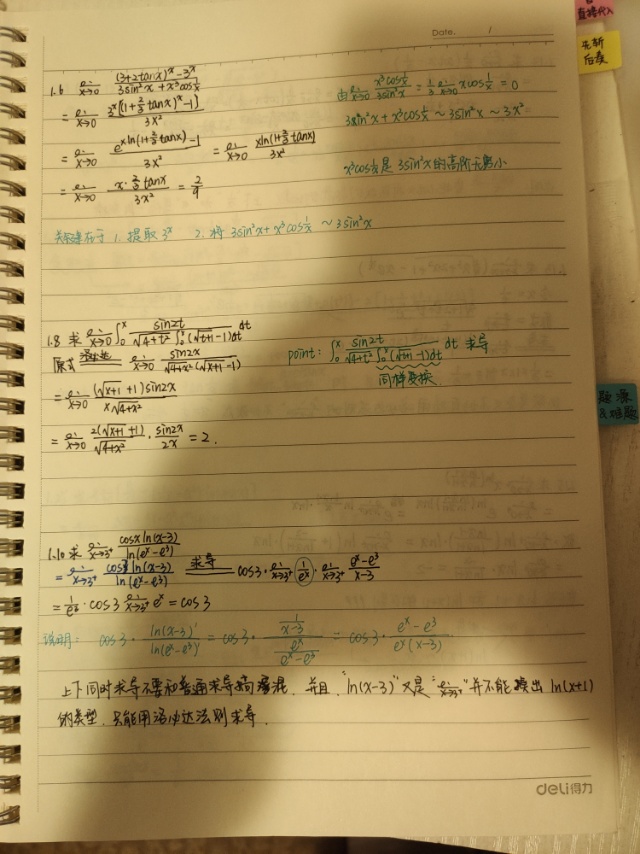 直接代入
先斩
后奏
Date. /
1.6 lim x→0 ((3+2tanx)^x - 3^x)/(3sin²x + x³cos 1/x)
= lim x→0 3^x[(1+2/3 tanx)^x - 1]/3x²
= lim x→0 (e^{xln(1+2/3 tanx)} - 1)/3x² = lim x→0 xln(1+2/3 tanx)/3x²
= lim x→0 (x·2/3 tanx)/3x² = 2/9
由 lim x→0 x³cos 1/x / 3sin²x = 1/3 lim x→0 xcos 1/x = 0
3sin²x + x³cos 1/x ~ 3sin²x ~ 3x²
x³cos 1/x 是 3sin²x 的高阶无穷小
关键在于 1. 提取 3^x 2. 将 3sin²x + x³cos 1/x ~ 3sin²x
1.8 求 lim x→0 ∫₀ˣ sin2t/(√(4+t²) ∫₀ˣ(√(t+1) - 1)dt) dt
原式 洛必达 lim x→0 sin2x/(√(4+x²)(√(x+1) - 1))
= lim x→0 (√(x+1) + 1)sin2x/(x√(4+x²))
= lim x→0 2(√(x+1) + 1)/√(4+x²) · sin2x/2x = 2.
point: ∫₀ˣ sin2t/(√(4+t²) ∫₀ˣ(√(t+1) - 1)dt) dt 求导
同样变换
1.10 求 lim x→3⁺ cosx ln(x-3)/ln(e^x - e³)
= lim x→3⁺ cos3 ln(x-3)/ln(e^x - e³) 求导 cos3 · lim x→3⁺ 1/e^x · lim x→3⁺ (e^x - e³)/(x-3)
= 1/e³ · cos3 lim x→3⁺ e^x = cos3
说明: cos3 · ln(x-3)'/ln(e^x - e³)' = cos3 · (1/(x-3))/(e^x/(e^x - e³)) = cos3 · (e^x - e³)/(e^x(x-3))
上下同时求导不要和普通求导搞混混, 并且 "ln(x-3)" 又是 "lim x→3⁺" 并不能换出 ln(x+1)
的类型, 只能用洛必达法则求导.
deli得力